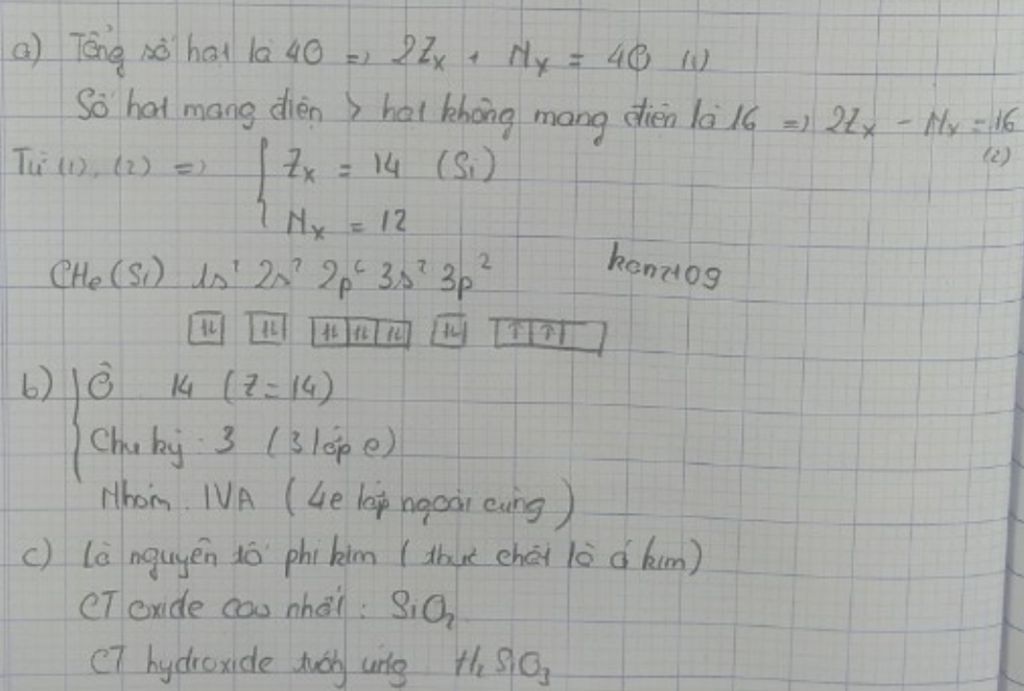 a) Tổng số hạt là 40 => 2Zx + Nx = 40 (1)
Số hạt mang điện > hạt không mang điện là 16 => 2Zx - Nx = 16 (2)
Từ (1), (2) => { Zx = 14 (Si)
Nx = 12
CHe (Si) 1s² 2s² 2p⁶ 3s² 3p²
kenz109
↑↓ ↑↓ ↑↓ ↑↓ ↑↓ ↑↓ ↑ ↑
b) Ô 14 (Z = 14)
Chu kỳ : 3 (3 lớp e)
Nhóm . IVA (4e lớp ngoài cùng)
c) Là nguyên tố phi kim (thực chất là á kim)
CT oxide cao nhất : SiO₂
CT hydroxide tương ứng H₂SiO₃